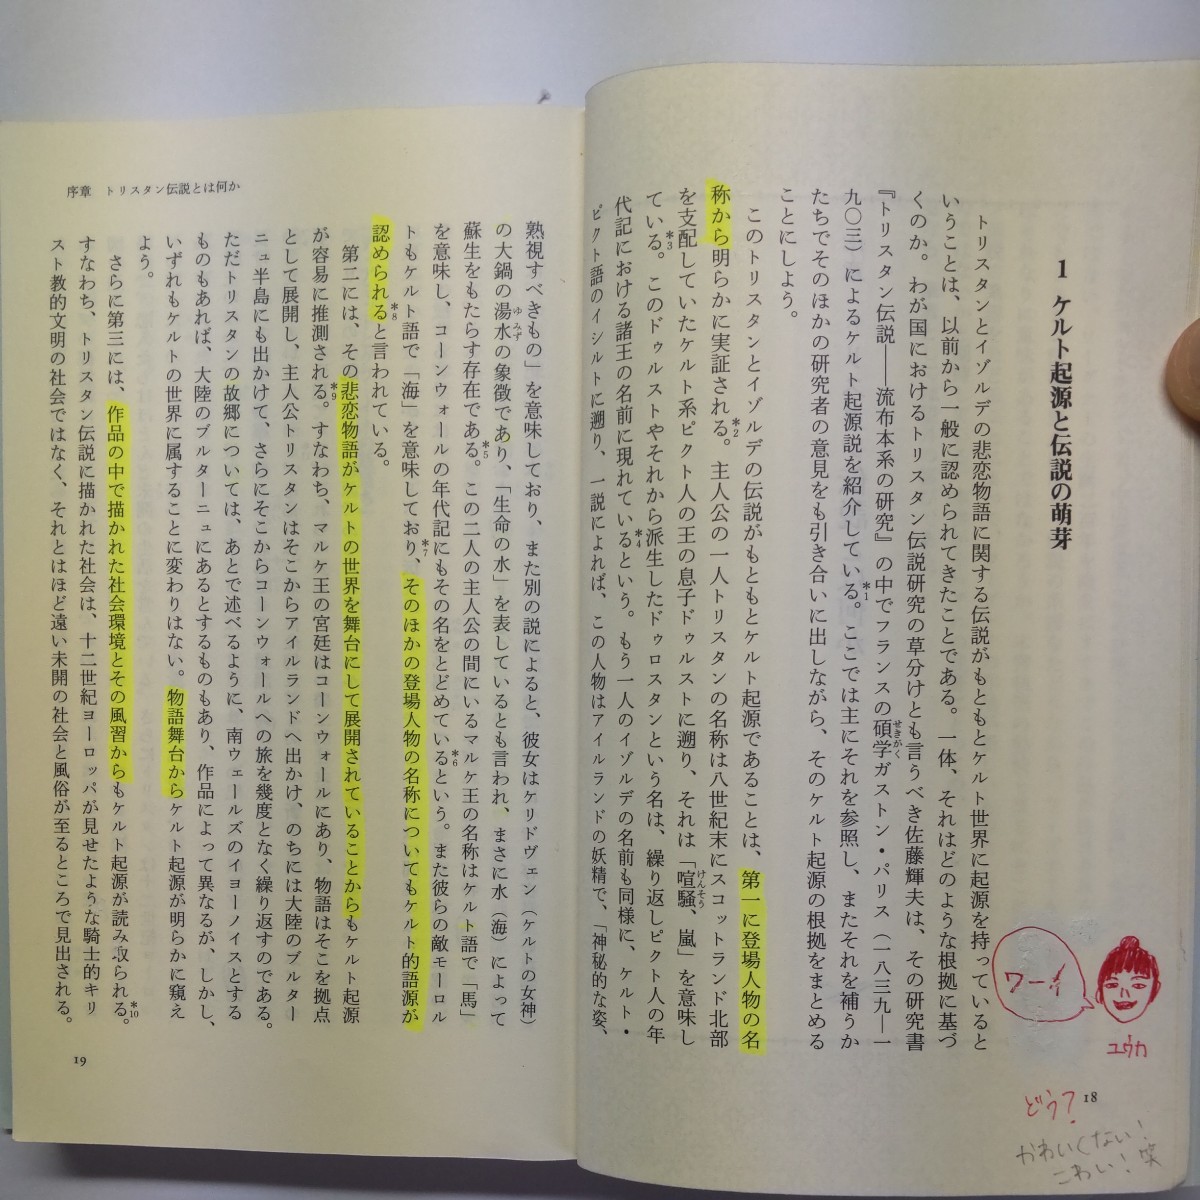 1 ケルト起源と伝説の萌芽
トリスタンとイゾルデの悲恋物語に関する伝説がもともとケルト世界に起源を持っていると
いうことは、以前から一般に認められてきたことである。一体、それはどのような根拠に基づ
くのか。わが国におけるトリスタン伝説研究の草分けとも言うべき佐藤輝夫は、その研究書
『トリスタン伝説――流布本系の研究』の中でフランスの碩学せきがくガストン・パリス（一八三九―一
九〇三）によるケルト起源説を紹介している。*1ここでは主にそれを参照し、またそれを補うか
たちでそのほかの研究者の意見をも引き合いに出しながら、そのケルト起源の根拠をまとめる
ことにしよう。
このトリスタンとイゾルデの伝説がもともとケルト起源であることは、第一に登場人物の名
称から明らかに実証される。*2主人公の一人トリスタンの名称は八世紀末にスコットランド北部
を支配していたケルト系ピクト人の王の息子ドゥルストに遡り、それは「喧騒けんそう、嵐」を意味し
ている。*3このドゥルストやそれから派生したドゥロスタンという名は、繰り返しピクト人の年
代記における諸王の名前に現れている*4という。もう一人のイゾルデの名前も同様に、ケルト・
ピクト語のイシルトに遡り、一説によれば、この人物はアイルランドの妖精で、「神秘的な姿、
ワーイ
ユウカ
18
どう？
かわいくない！
こわい！笑
序章 トリスタン伝説とは何か
熟視すべきもの」を意味しており、また別の説によると、彼女はケリドヴェン（ケルトの女神）
の大鍋の湯水ゆみずの象徴であり、「生命の水」を表しているとも言われ、まさに水（海）によって
蘇生をもたらす存在である。*5この二人の主人公の間にいるマルケ王の名称はケルト語で「馬」
を意味し、コーンウォールの年代記にもその名をとどめている*6という。また彼らの敵モーロル
トもケルト語で「海」を意味しており、*7そのほかの登場人物の名称についてもケルト的語源が
認められる*8と言われている。
第二には、その悲恋物語がケルトの世界を舞台にして展開されていることからもケルト起源
が容易に推測される。*9すなわち、マルケ王の宮廷はコーンウォールにあり、物語はそこを拠点
として展開し、主人公トリスタンはそこからアイルランドへ出かけ、のちには大陸のブルター
ニュ半島にも出かけて、さらにそこからコーンウォールへの旅を幾度となく繰り返すのである。
ただトリスタンの故郷については、あとで述べるように、南ウェールズのイヨーノイスとする
ものもあれば、大陸のブルターニュにあるとするものもあり、作品によって異なるが、しかし、
いずれもケルトの世界に属することに変わりはない。物語舞台からケルト起源が明らかに窺え
よう。
さらに第三には、作品の中で描かれた社会環境とその風習からもケルト起源が読み取られる。*10
すなわち、トリスタン伝説に描かれた社会は、十二世紀ヨーロッパが見せたような騎士的キリ
スト教的文明の社会ではなく、それとはほど遠い未開の社会と風俗が至るところで見出される。
19